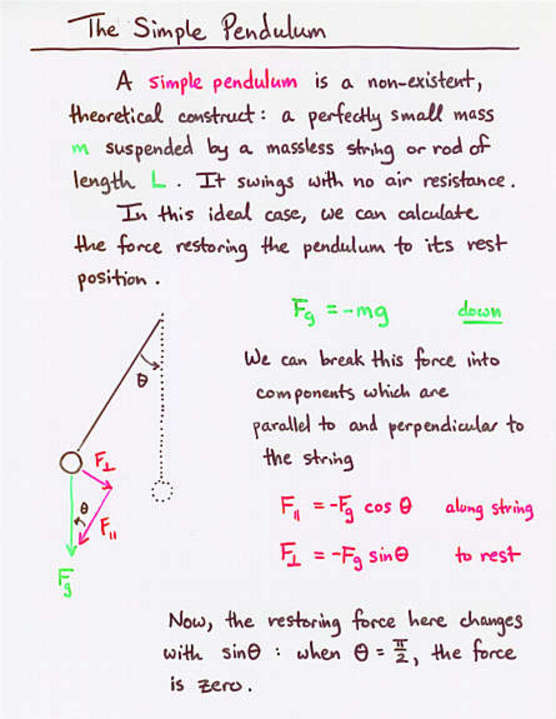 The Simple Pendulum
A simple pendulum is a non-existent,
theoretical construct: a perfectly small mass
m suspended by a massless string or rod of
length L. It swings with no air resistance.
In this ideal case, we can calculate
the force restoring the pendulum to its rest
position.
F_g = -mg down
We can break this force into
components which are
parallel to and perpendicular to
the string
θ
F⊥
θ
F∥
F_g
F∥ = -F_g cos θ along string
F⊥ = -F_g sin θ to rest
Now, the restoring force here changes
with sin θ : when θ = π/2, the force
is zero.